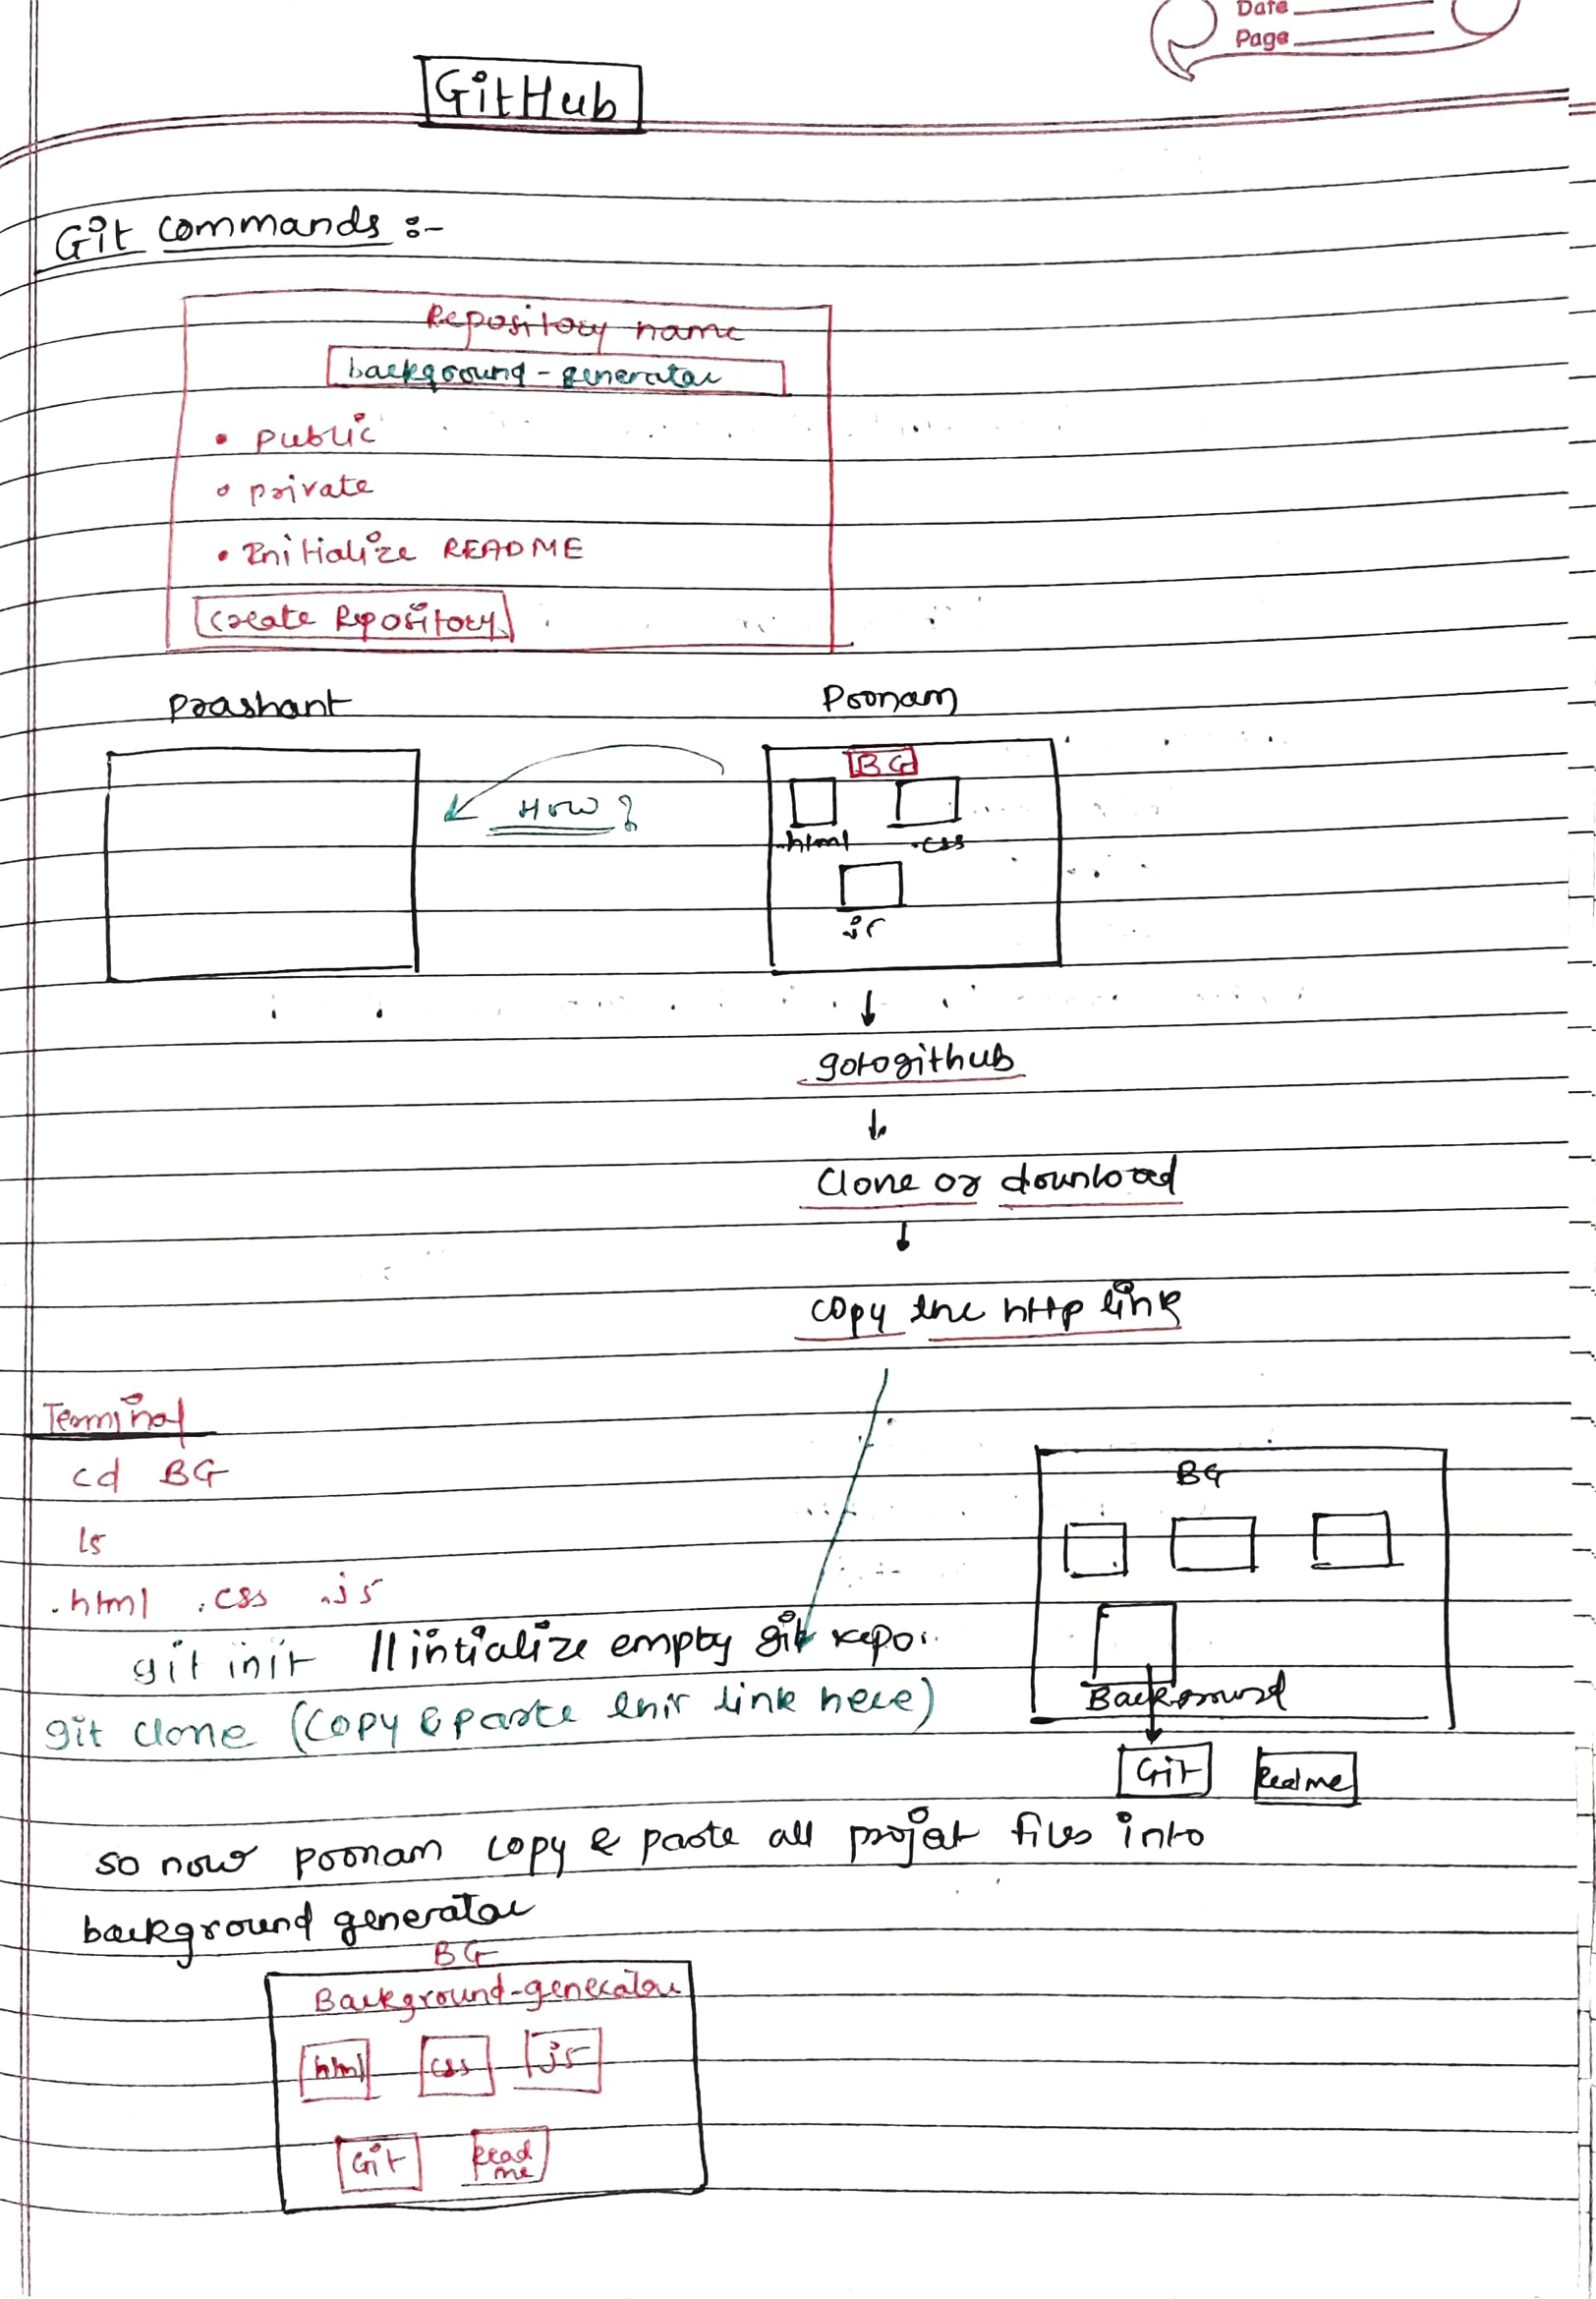 Date
Page
GitHub
Git commands :-
Repository name
background-generator
• public
o private
• Initialize README
Create Repository
Prashant Poonam
BG
How ?
.html .css
.js
goto github
clone or download
copy the http link
Terminal
cd BG
BG
ls
.html .css .js
git init // intialize empty git repo.
Background
git clone (copy & paste this link here)
Git Readme
so now poonam copy & paste all projet files into
background generator
BG
Background-generator
html css js
Git Read
me